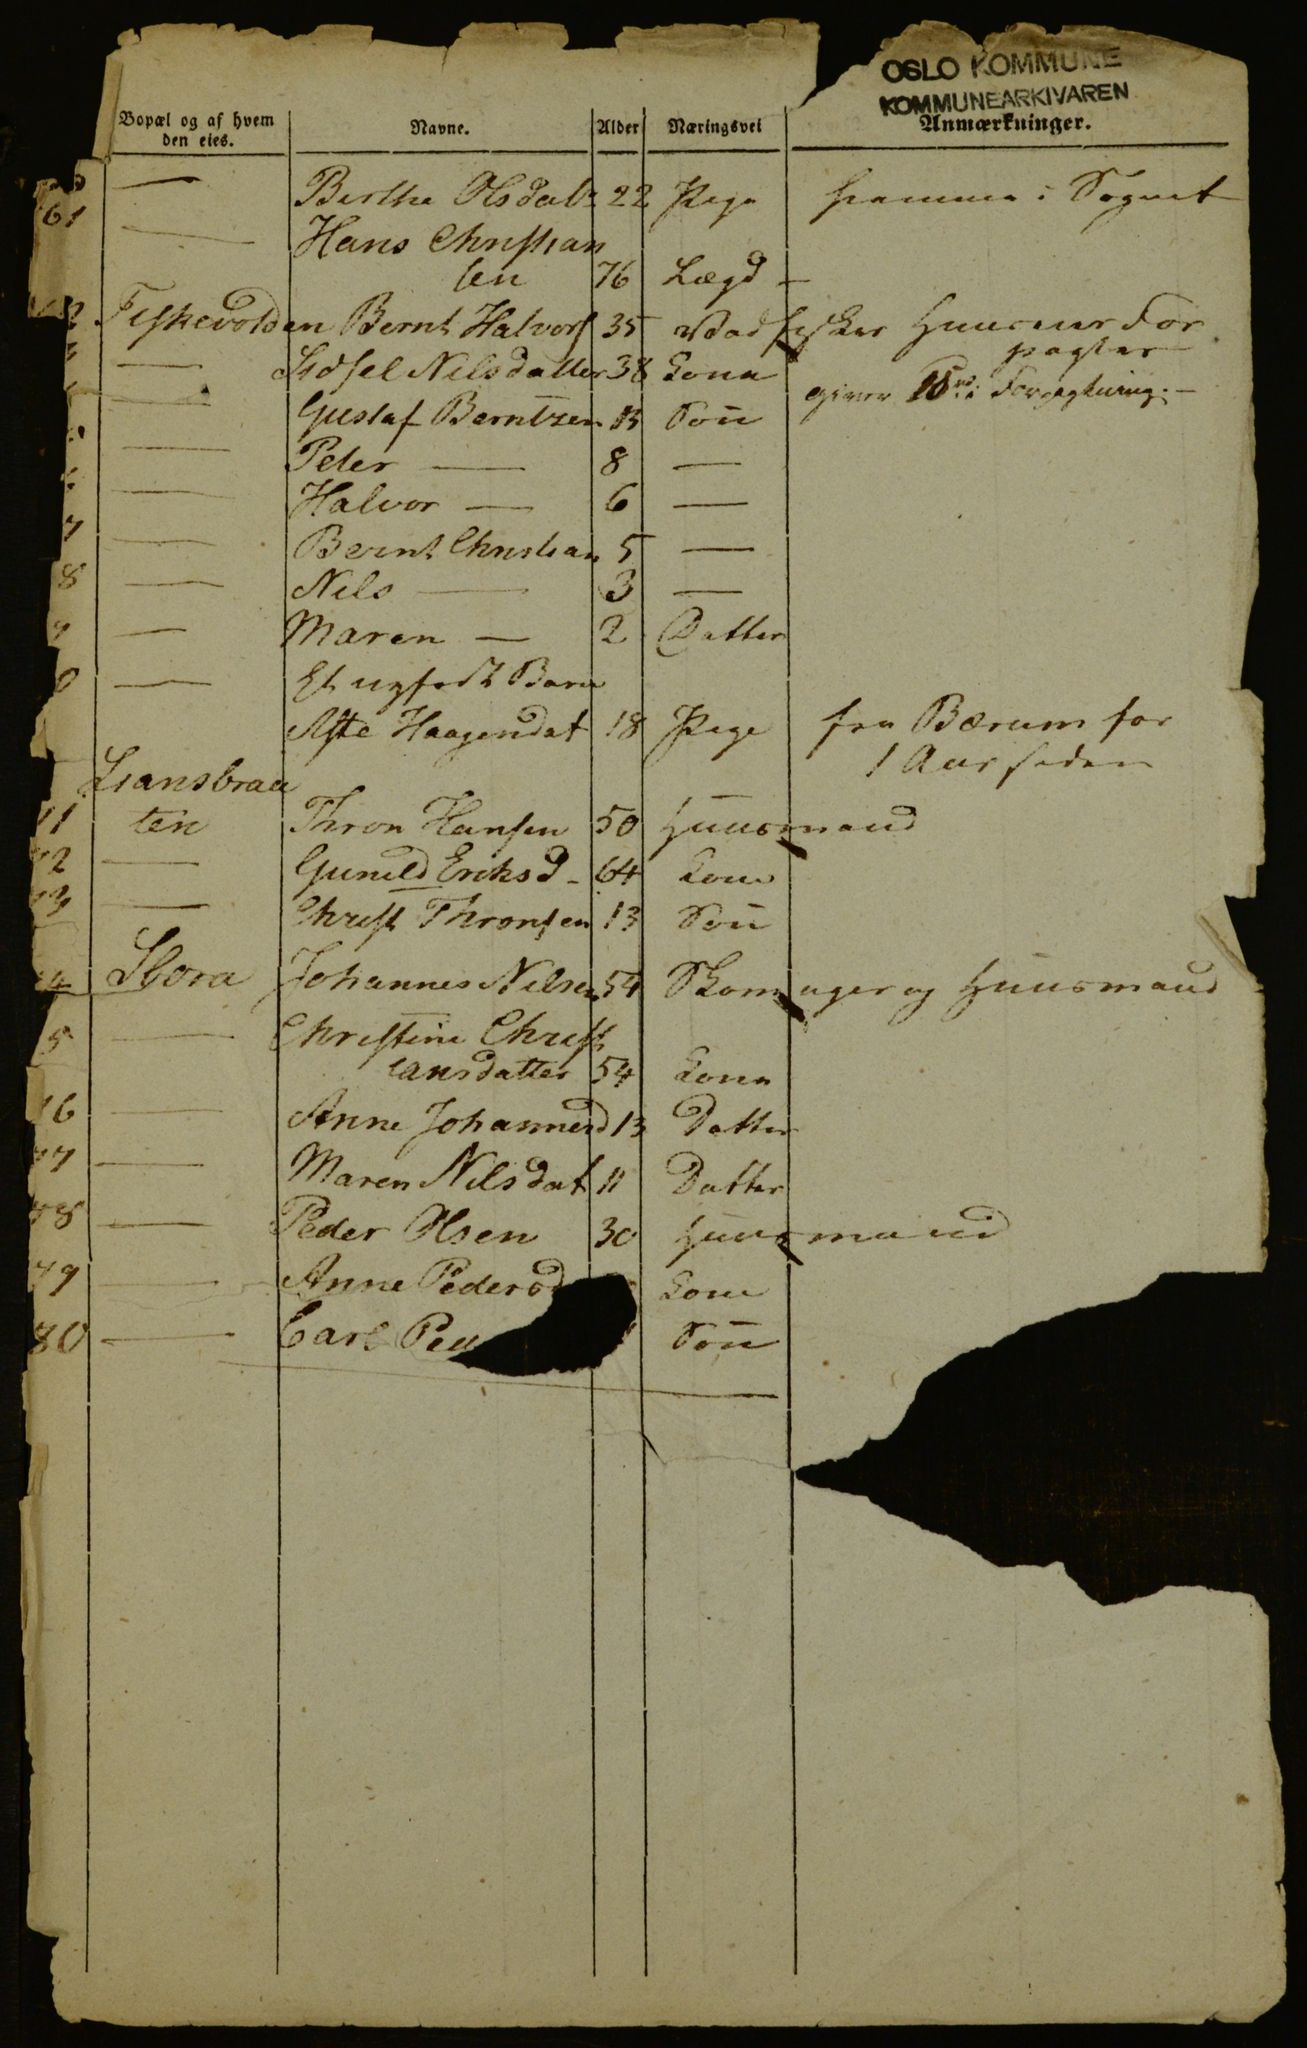 OSLO KOMMUNE
KOMMUNEARKIVAREN
Bopæl og af hvem den eies. Navne. Alder Næringsvei Anmærkninger.
— Berthe Olsdatr 22 Pige hiemme i Sognet
61 — Hans Christian
sen 76 Lægd —
2 Fiskevolden Bernt Halvors 35 Vadfisker Huuseier For
pagter
— Sidsel Nilsdatter 38 Kona giver i Forpagtning. —
— Gustaf Berntzen Søn
— Peter — 8 —
— Halvor — 6 —
7 — Bernt Christian 5 —
8 — Nils — 3 —
9 — Maren — 2 Datter
0 — Et nyfødt Barn
Aste Haagendat 18 Pige fra Bærum for
1 Aar siden
Liansbraa
11 ten Thron Hansen 50 Huusmand
72 — Gunild Eriksd - 64 Kone
73 — Christ Thronsen 13 Søn
4 Stora Johannes Nilsen 54 Skomager og Huusmand
5 — Christine Christ
iansdatter 54 Kona
76 — Anne Johannesd 13 Datter
77 — Maren Nilsdat 11 Datter
78 — Peder Olsen 30 Huusmand
79 — Anne Pedersd Kone
80 — Carl Ped Søn